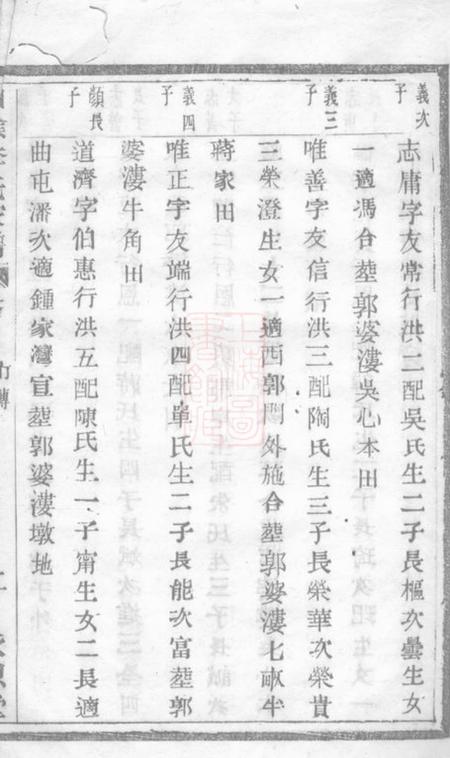 義次子
志庸字友常行洪二配吳氏生二子長樞次曇生女
一適馮合塟郭婆漊吳心本田
義三子
唯善字友信行洪三配陶氏生三子長榮華次榮貴
三榮澄生女一適西郭門外施合塟郭婆漊七畝半
蔣家田
義四子
唯正字友端行洪四配單氏生二子長能次富塟郭
婆漊牛角田
顯長子
道濟字伯惠行洪五配陳氏生一子甯生女二長適
曲屯潘次適鍾家灣宣塟郭婆漊墩地